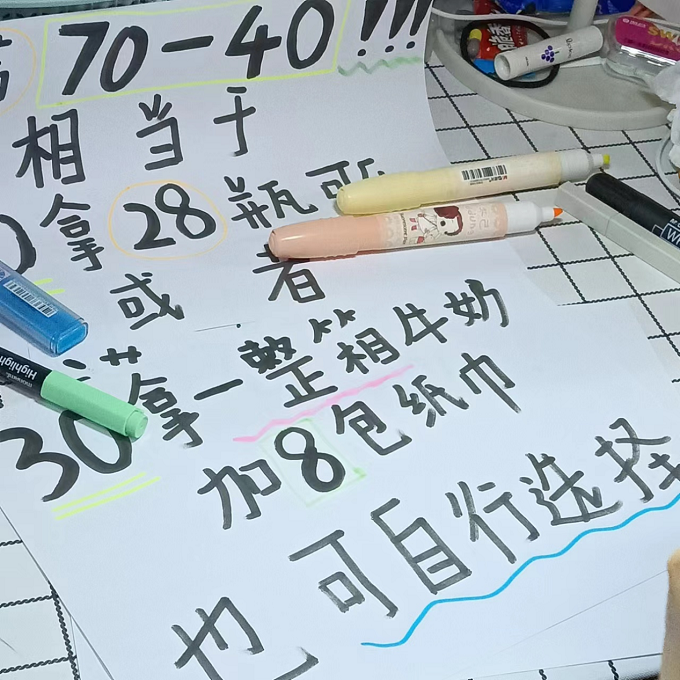 70-40!!!
相当于
拿28瓶可
或者
30拿一整箱牛奶
加8包纸巾
也可自行选择
Highligh